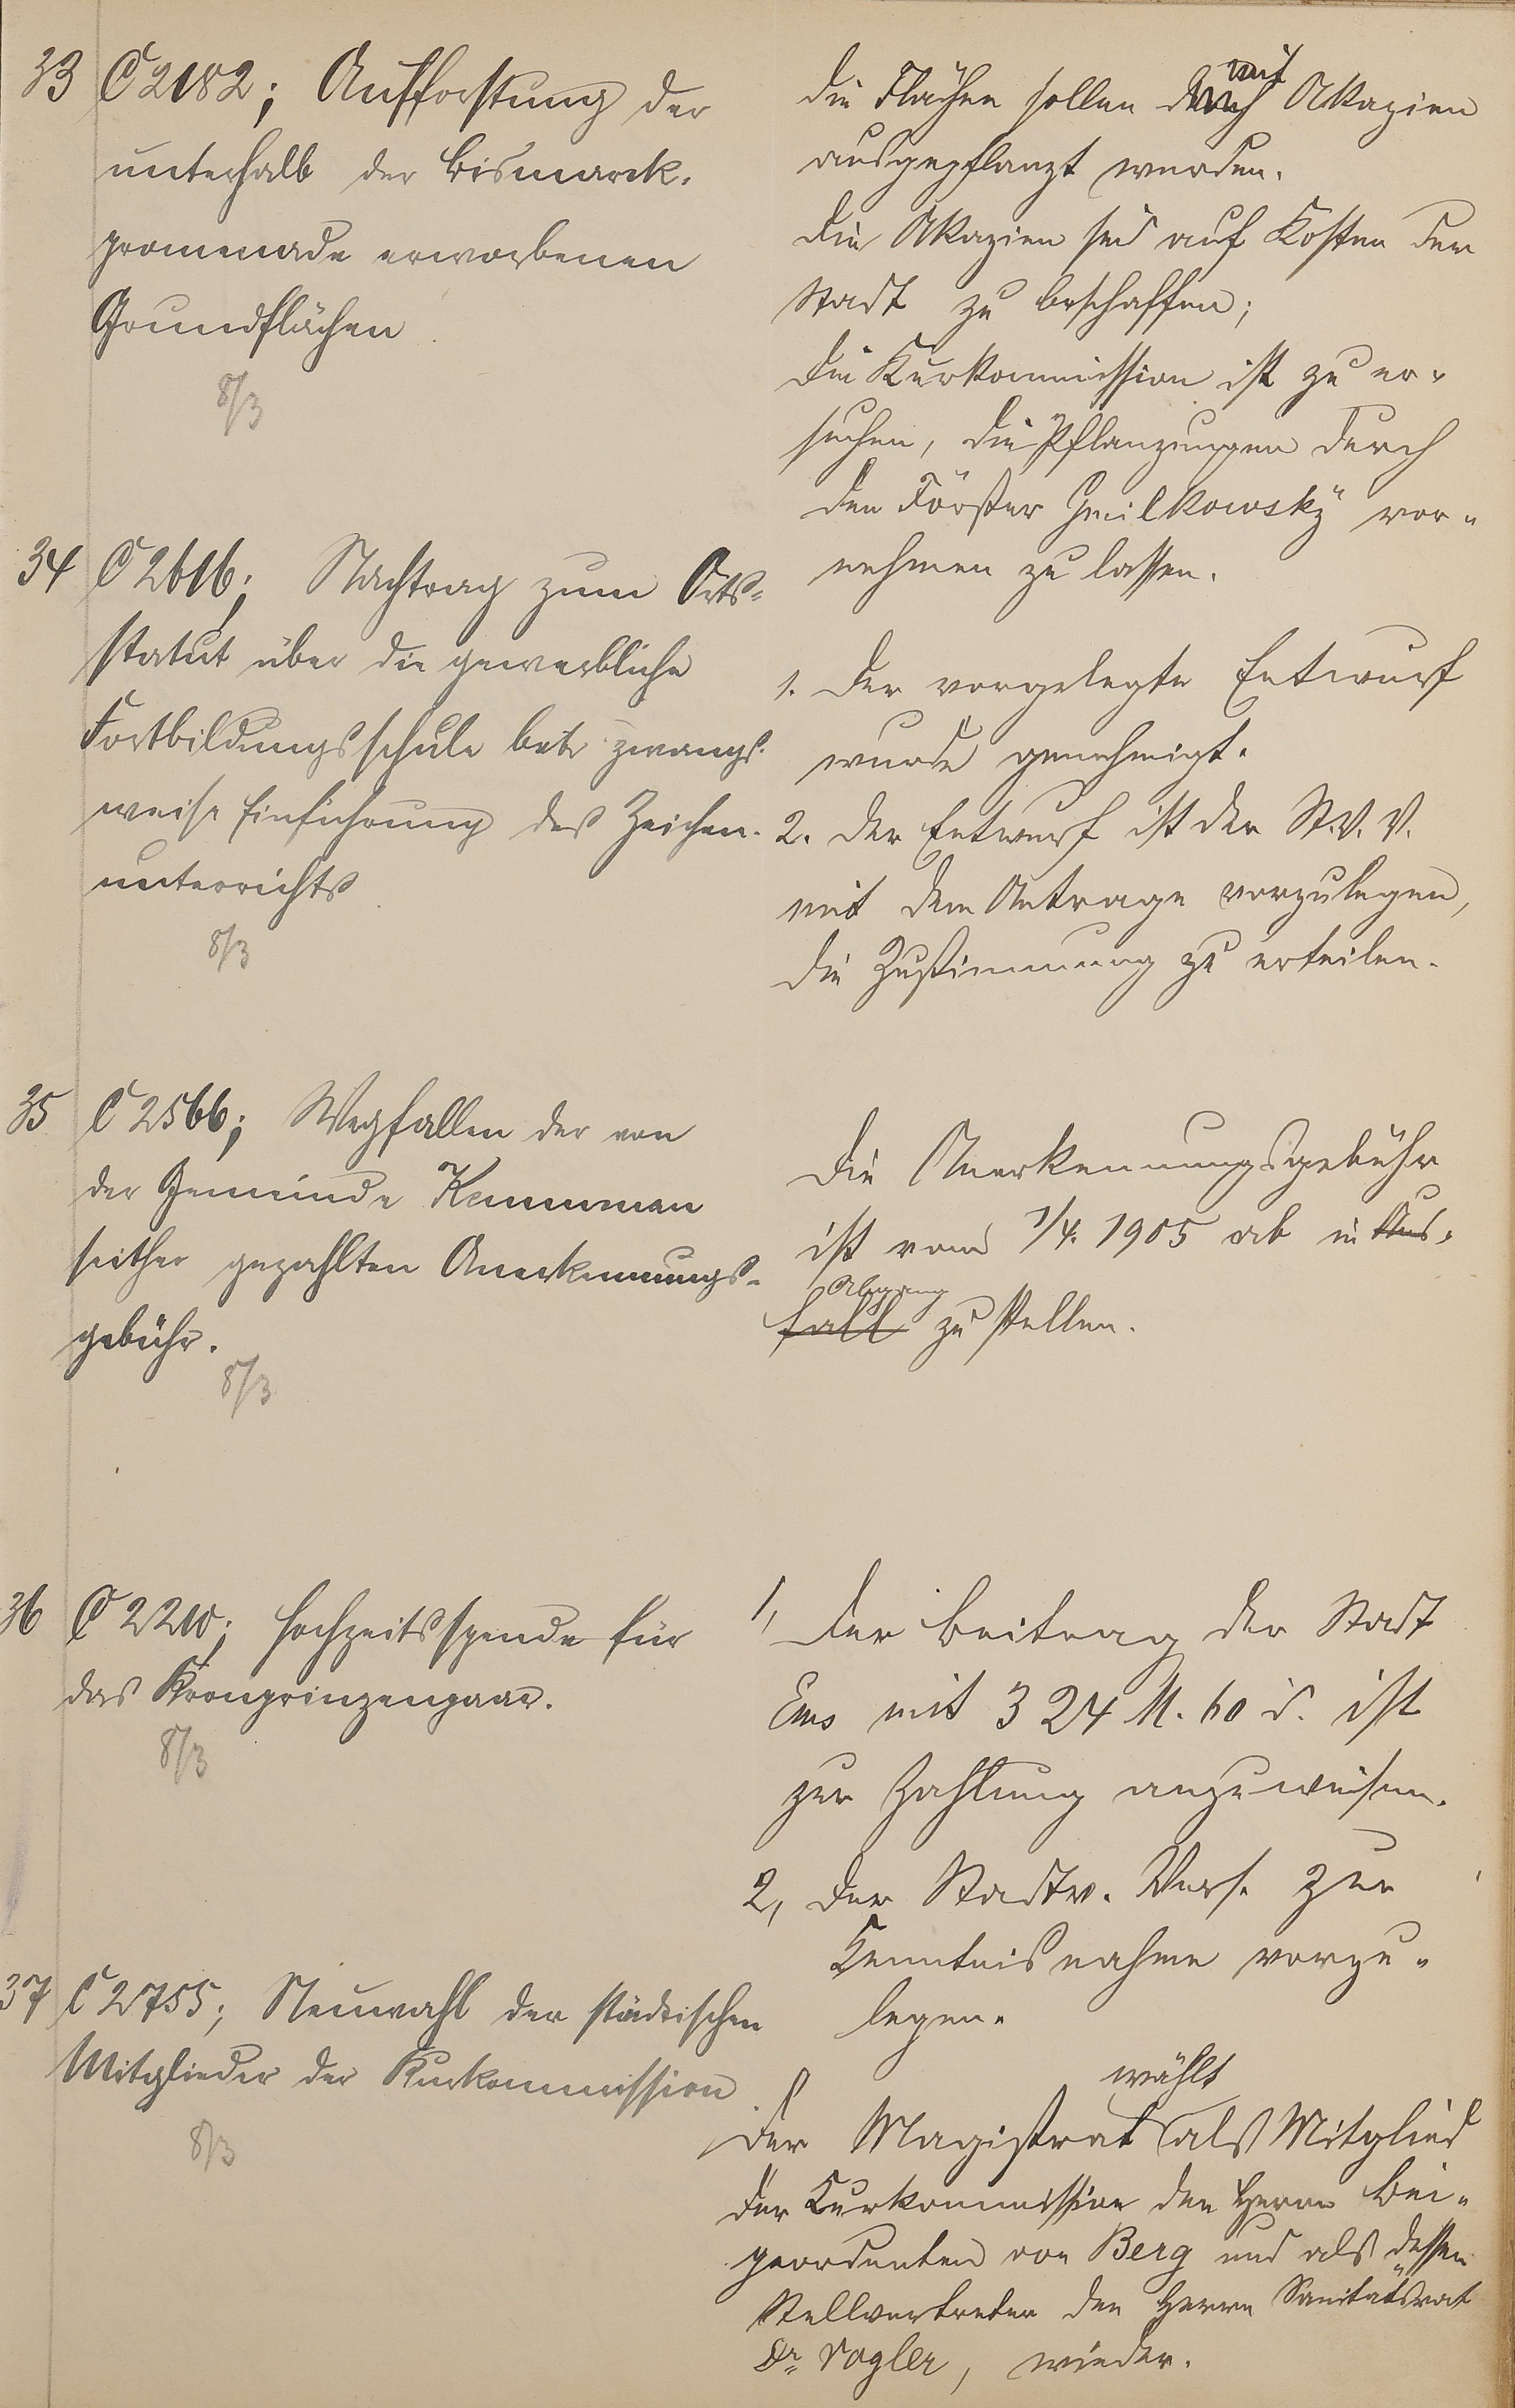 33 C 2182; Aufforstung der
unterhalb der Bismarck-
promenade erworbenen
Grundflächen
8/3
die Flächen sollen durch mit Akazien
ausgepflanzt werden.
Die Akazien sind auf Kosten der
Stadt zu beschaffen;
die Kurkommission ist zu er-
suchen, die Pflanzungen durch
den Förster Gmilkowsky vor-
nehmen zu lassen.
34 C 2616; Nachtrag zum Orts-
statut über die gewerbliche
Fortbildungsschule betr. zwangs-
weise Einführung des Zeichen-
unterrichts
8/3
1. Der vorgelegte Entwurf
wurde genehmigt.
2. Der Entwurf ist der St. V. V.
mit dem Antrage vorzulegen,
die Zustimmung zu erteilen.
35 C 2566; Wegfallen der von
der Gemeinde Kemmenau
seither gezahlten Anerkennungs-
gebühr.
8/3
Die Anerkennungsgebühr
ist vom 1/4. 1905 ab in Aus-
Abgang
fall zu stellen.
36 C 2210; Hochzeitsspende für
das Kronprinzenpaar.
8/3
1, Der Beitrag der Stadt
Ems mit 324 M. 60 d. ist
zur Zahlung anzuweisen.
2, Der Stadtv. Vers. zur
Kenntnisnahme vorzu-
legen.
37 C 2755; Neuwahl der städtischen
Mitglieder der Kurkommission
8/3
wählt
Der Magistrat als Mitglied
der Kurkommission den Herrn Bei-
geordneten von Berg und als dessen
Stellvertreter den Herrn Sanitätsrat
Dr. Vogler, wieder.